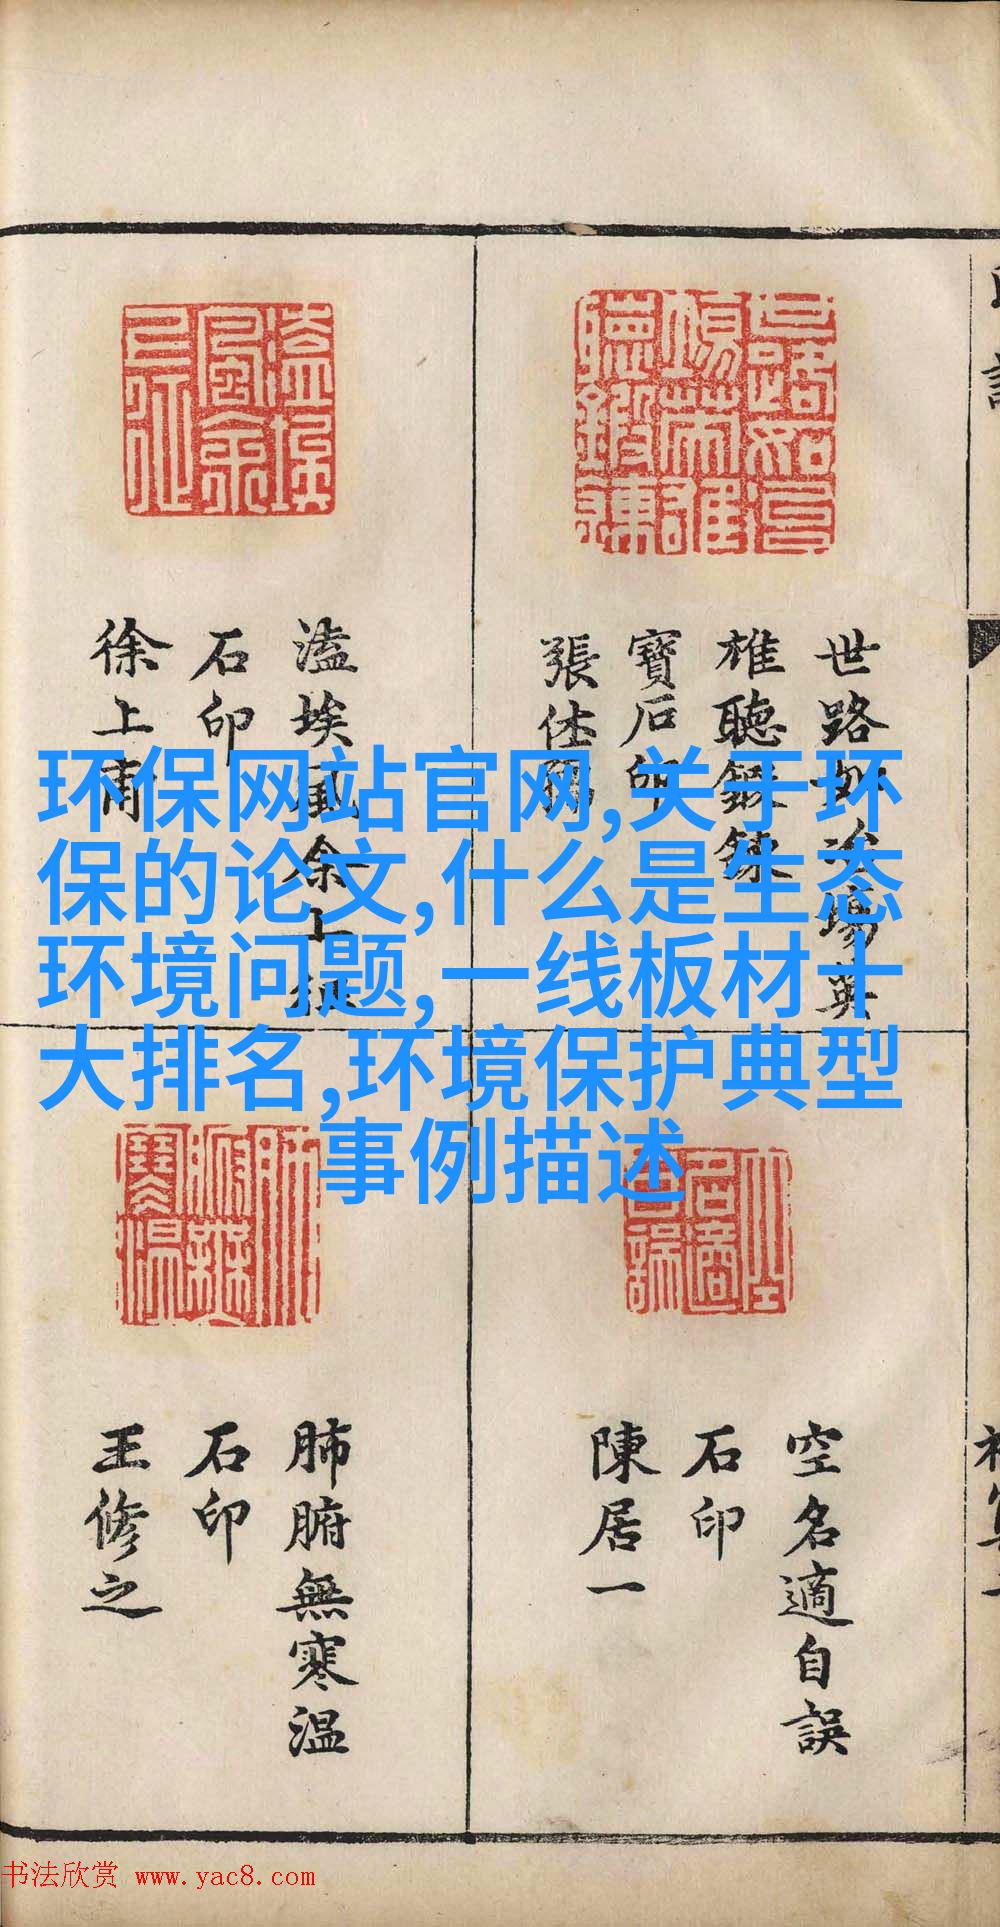 环保网站官网,关于环
保的论文,什么是生态
环境问题,一线板材十
大排名,环境保护典型
事例描述
世路如冶英
雄聽鍛鍊
寶石印
張仕
溘埃風余上征
石印
徐上甫
空名適自誤
石印
陳居一
肺腑無寒溫
石印
王修之
书法欣赏 www.yac8.com